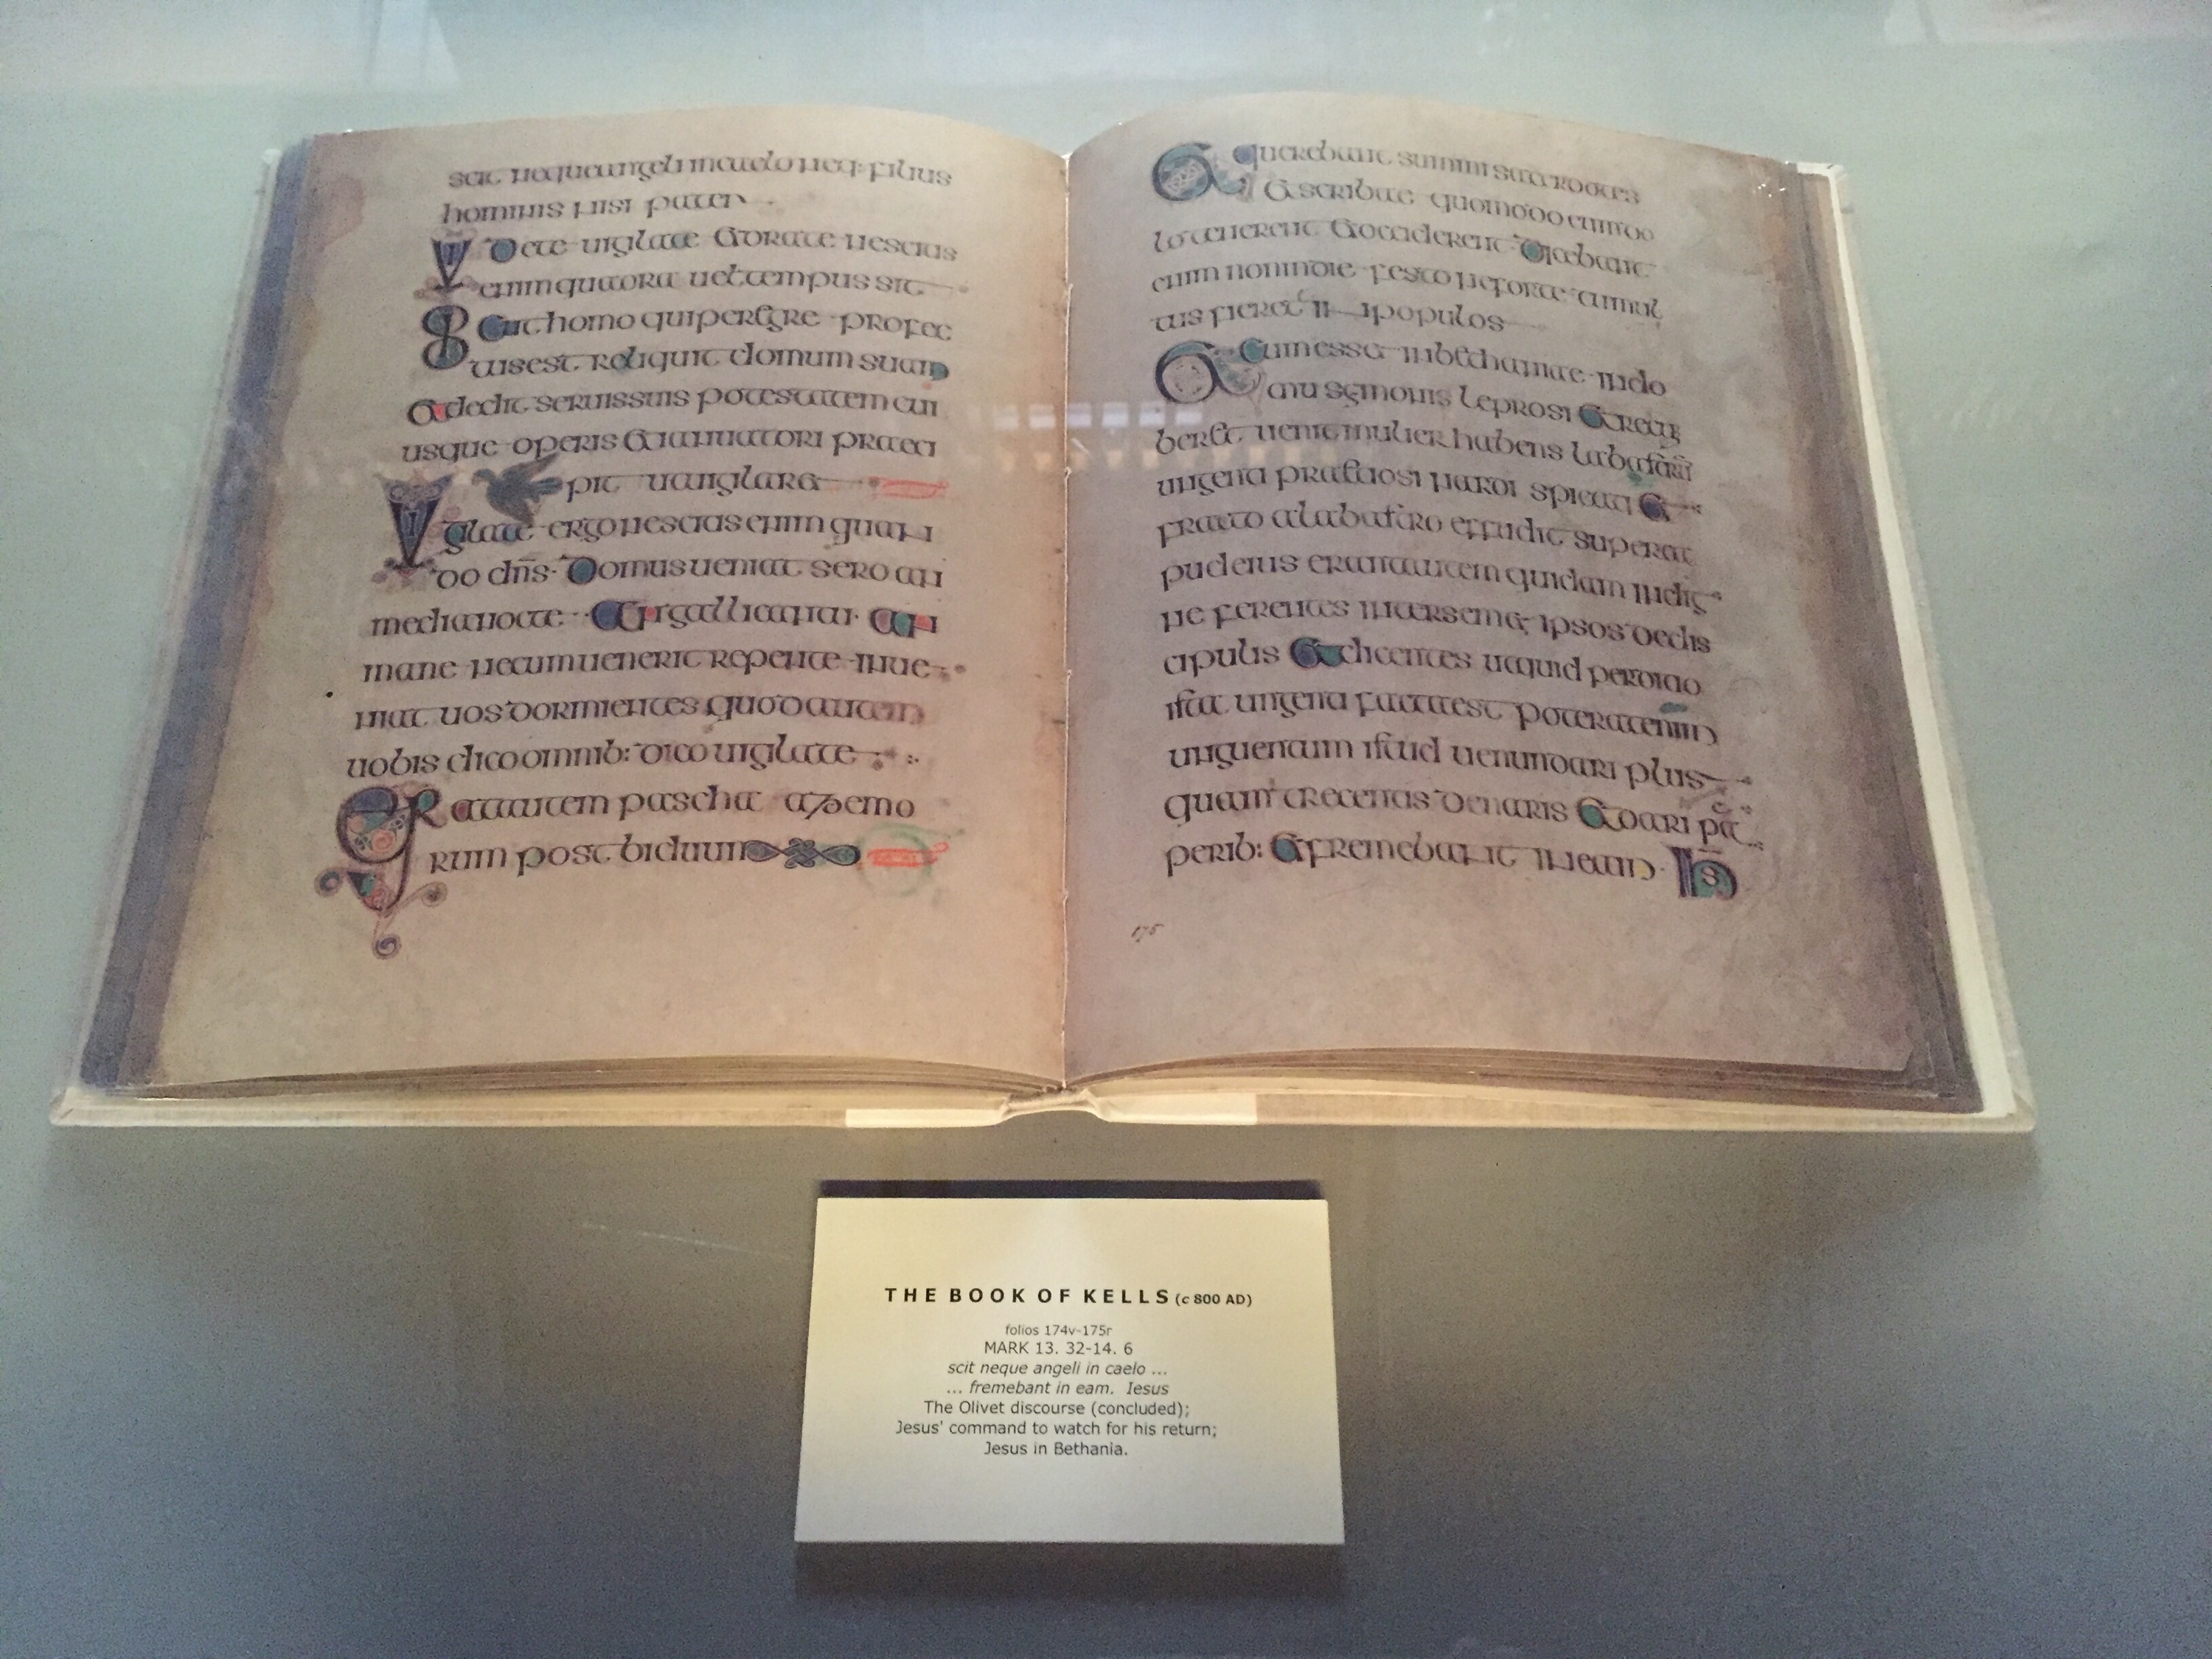 scit neque angeli in caelo neq: filius
hominis nisi pater
Videte uigilate et orate nescitis
enim quatora uel tempus sit
Sicut homo qui peregre profec
tus est reliquit domum suam
et dedit seruis suis potestatem cui
usque operis et ianuatori praeci
pit uangilaret
Vigilate ergo nescitis enim quan
do dn̄s domus ueniat sero an
media nocte an galli cantu an
mane ne cum uenerit repente inue
niat uos dormientes quod autem
uobis dico omnib: dico uigilate
Erat autem pascha azemo
rum post biduum
et querebant summi sacerdotes
et scribae quomodo eum do
lo tenerent et occiderent Dicebant
enim non in die festo ne forte tumul
tus fieret in populos
et cum esset in bethaniae in do
mu semonis leprosi et recum
beret uenit mulier habens alabastrum
ungenti praetiosi nardi spicati et
fracto alabastro effudit super ca
pud eius erant autem quidam indig
ne ferentes inter semet ipsos dedis
cipulis et dicentes utquid perditio
ista ungenti facta est poterat enim
unguentum istud uenundari plus
quam trecentis denaris et dari pa
perib: et fremebant in eam ihs
175
THE BOOK OF KELLS (c 800 AD)
folios 174v-175r
MARK 13. 32-14. 6
scit neque angeli in caelo ...
... fremebant in eam. Iesus
The Olivet discourse (concluded);
Jesus' command to watch for his return;
Jesus in Bethania.